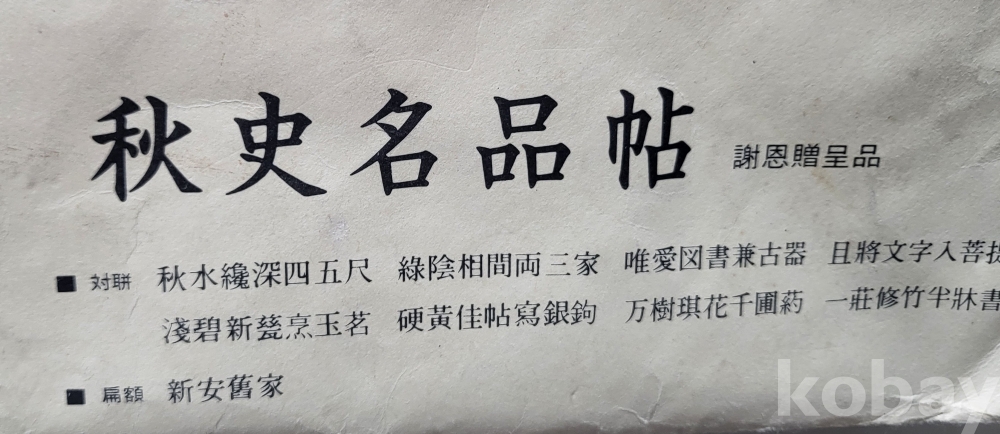 秋史名品帖 謝恩贈呈品
■ 対聯 秋水纔深四五尺 綠陰相間両三家 唯愛図書兼古器 且將文字入菩提
淺碧新甆烹玉茗 硬黃佳帖寫銀鉤 万樹琪花千圃葯 一莊修竹半牀書
■ 扁額 新安舊家
kobay